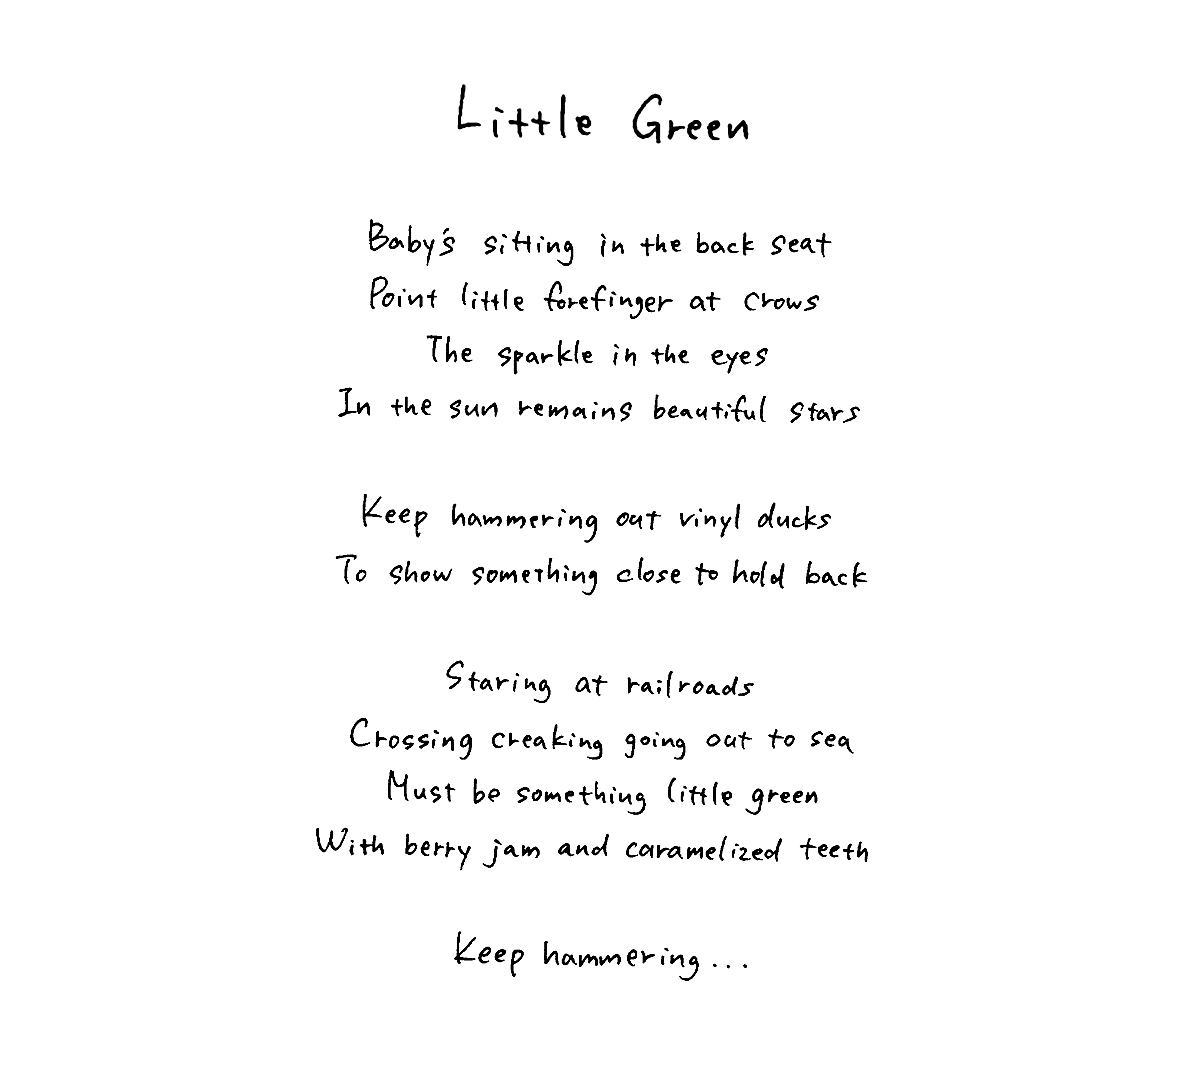 Little Green
Baby's sitting in the back seat
Point little forefinger at crows
The sparkle in the eyes
In the sun remains beautiful stars
Keep hammering out vinyl ducks
To show something close to hold back
Staring at railroads
Crossing creaking going out to sea
Must be something little green
With berry jam and caramelized teeth
Keep hammering...